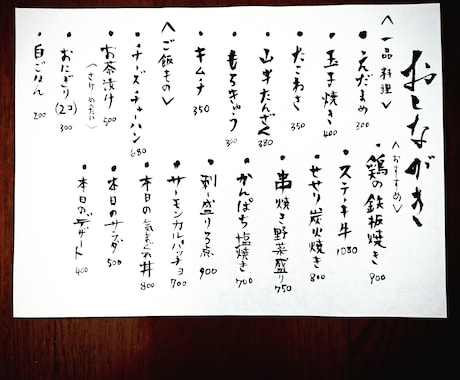 おしながき
〈一品料理〉
・えだまめ 300
・玉子焼き 400
・たこわさ 350
・山芋たんざく 380
・もろきゅう 300
・キムチ 350
〈ご飯もの〉
・チーズチャーハン 680
・お茶漬け 500
(さけ めんたい)
・おにぎり(2コ) 300
・白ごはん 200
〈おすすめ〉
・鶏の鉄板焼き 900
・ステーキ牛 1080
・せせり炭火焼き 800
・串焼き野菜盛り 750
・かんぱち塩焼き 700
・刺し盛り3点 900
・サーモンカルパッチョ 700
・本日の気まぐれ丼 800
・本日のサラダ 500
・本日のデザート 400